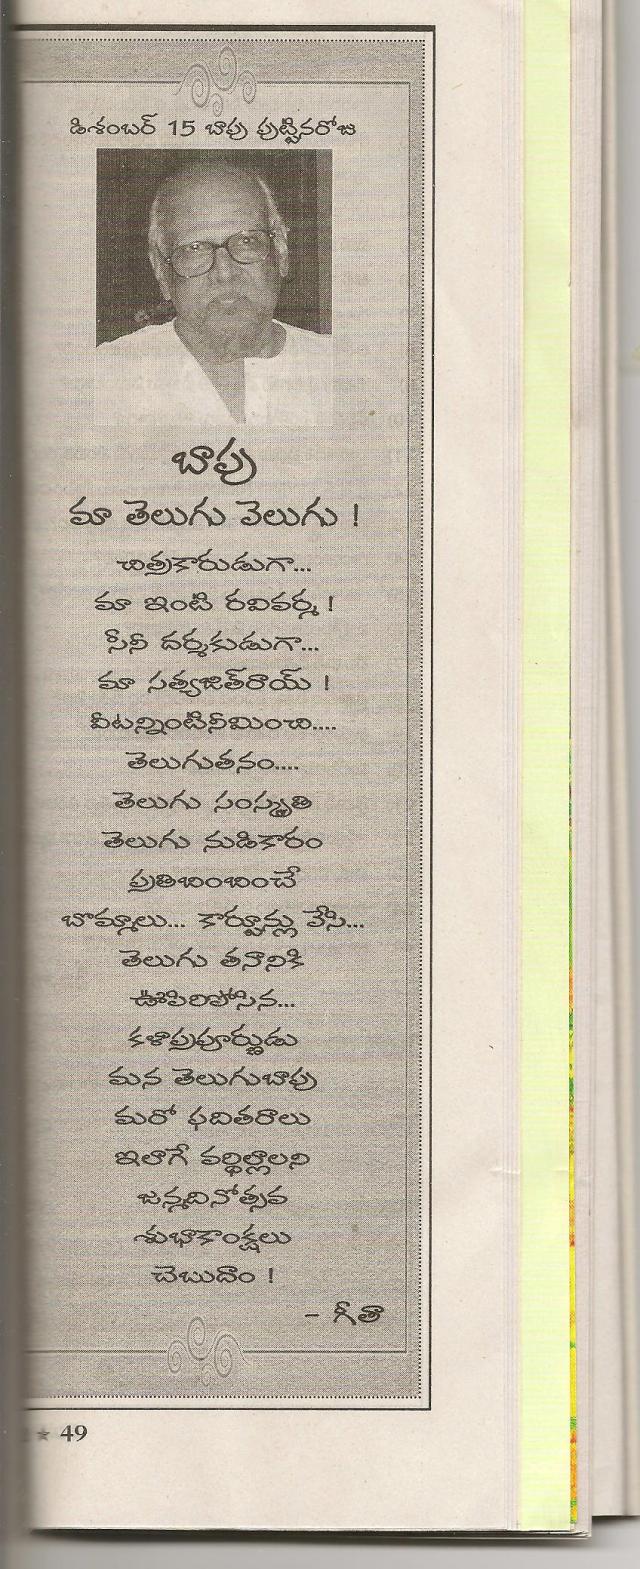 డిశంబర్ 15 బాపు పుట్టినరోజు
బాపు
మా తెలుగు వెలుగు !
చిత్రకారుడుగా...
మా ఇంటి రవివర్మ !
సినీ దర్శకుడుగా...
మా సత్యజిత్‌రాయ్ !
వీటన్నింటినీమించి....
తెలుగుతనం....
తెలుగు సంస్కృతి
తెలుగు నుడికారం
ప్రతిబింబించే
బొమ్మాలు... కార్టూన్లు వేసి...
తెలుగు తనానికి
ఊపిరిపోసిన...
కళాప్రపూర్ణుడు
మన తెలుగుబాపు
మరో పదితరాలు
ఇలాగే వర్ధిల్లాలని
జన్మదినోత్సవ
శుభాకాంక్షలు
చెబుదాం !
– గీతా
★ 49